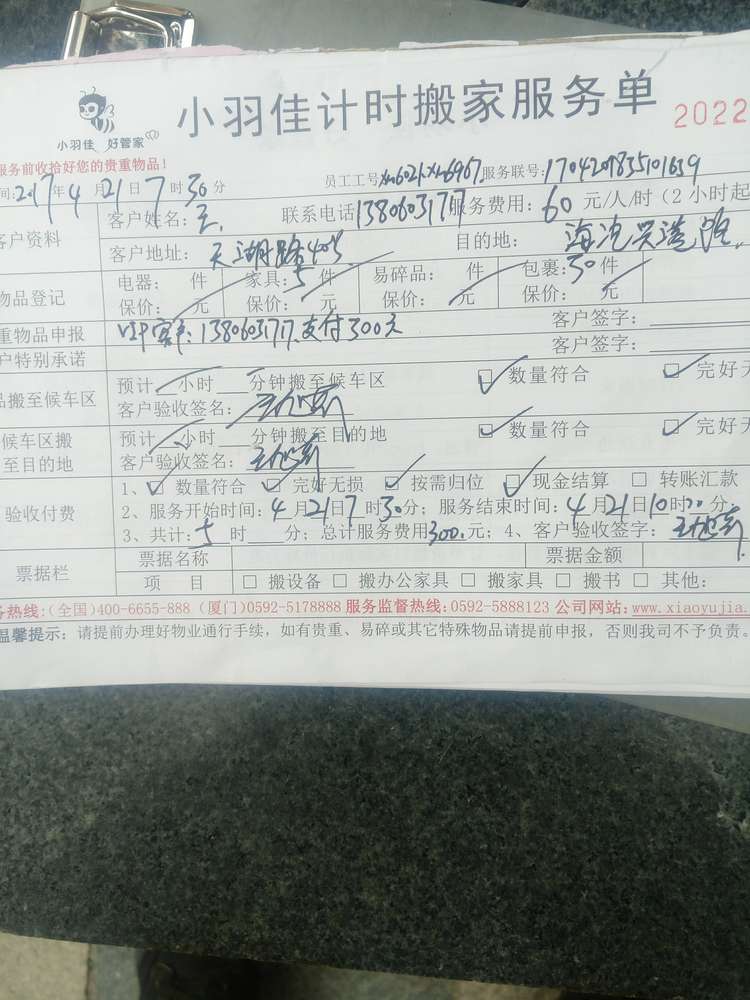 小羽佳 好管家
小羽佳计时搬家服务单 2022
服务前收拾好您的贵重物品!
间:2017年4月21日7时30分 员工工号 xm6021.xm6967 服务联号:1704201835101639
客户资料 客户姓名:王. 联系电话 1380603177 服务费用:60元/人/时(2小时起
客户地址:天湖路40号 目的地:海沧兴港路
物品登记 电器: 件 家具:5件 易碎品: 件 包裹:30件
保价: 元 保价: 元 保价: 元 保价: 元
重物品申报 VIP客户:1380603177.支付300元 客户签字:
户特别承诺 客户签字:
品搬至候车区 预计 小时 分钟搬至候车区 数量符合 完好无
客户验收签名:
候车区搬 预计 小时 分钟搬至目的地 数量符合 完好无
至目的地 客户验收签名:
验收付费 1、 数量符合 完好无损 按需归位 现金结算 转账汇款
2、服务开始时间:4月21日7时30分; 服务结束时间:4月21日10时 分;
3、共计:5时 分; 总计服务费用300元; 4、客户验收签字:
票据栏 票据名称 票据金额
项 目 搬设备 搬办公家具 搬家具 搬书 其他:
务热线:(全国)400-6655-888 (厦门)0592-5178888 服务监督热线:0592-5888123 公司网站:www.xiaoyujia.
温馨提示:请提前办理好物业通行手续,如有贵重、易碎或其它特殊物品请提前申报,否则我司不予负责。